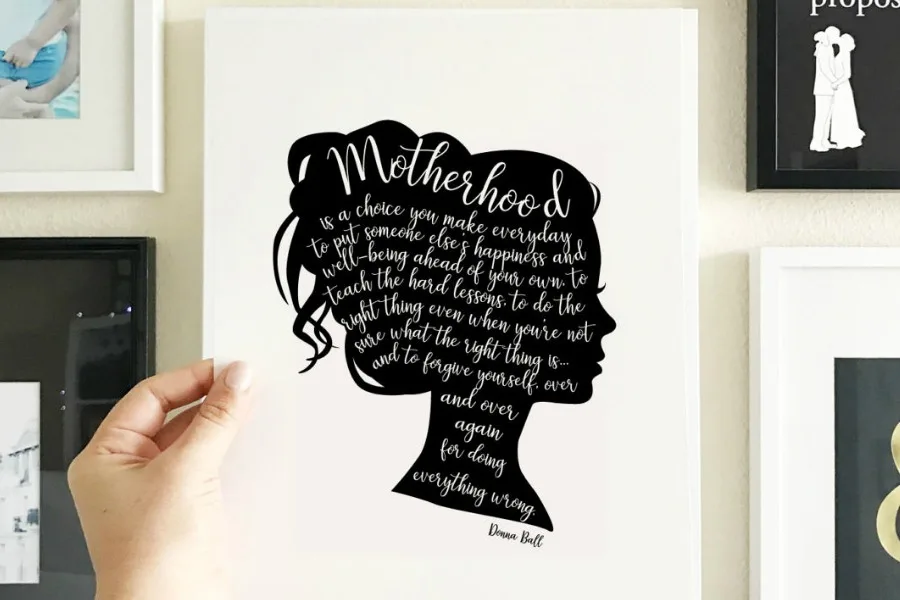 propos
Motherhood
is a choice you make everyday,
to put someone else's happiness and
well-being ahead of your own, to
teach the hard lessons, to do the
right thing even when you're not
sure what the right thing is...
and to forgive yourself, over
and over
again
for doing
everything wrong.
Donna Ball
8